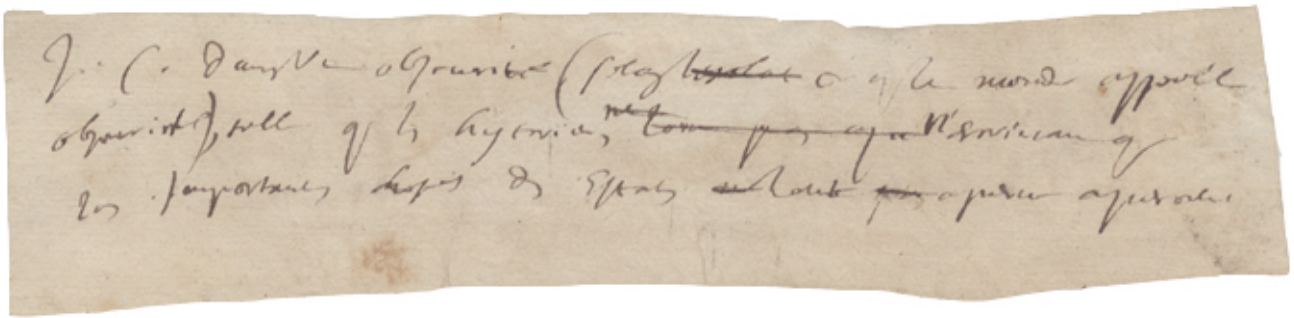 J. C. dans une obscurité (selon ce q le monde appelle
obscurité), telle q les historiens, n'escrivant q
les importantes choses des Estats l'ont a peine aperceu